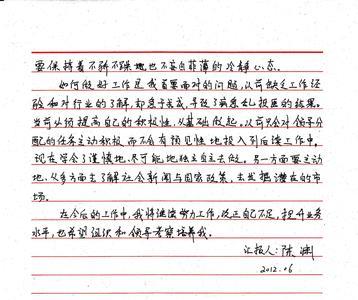 要保持着不骄不躁地也不妄自菲薄的冷静心态。
如何做好工作是我首要面对的问题，以前缺乏工作经
验和对行业的了解，却急于求成，导致了病急乱投医的结果。
当前必须提高自己的积极性，从基础做起。以前只会对领导分
配的任务主动积极而不会有预见性地投入到后续工作中。
现在学会了谨慎地、尽可能地独立自主去做。另一方面要主动
地、从多方面去了解社会新闻与国家政策，去发掘潜在的市
场。
在今后的工作中，我将继续努力工作，改正自己不足，提升业务
水平，也希望组织和领导考察培养我。
汇报人：陈渊
2012.06